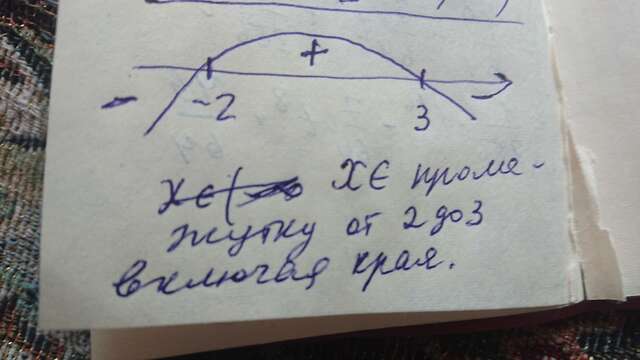 +
- -2 3 -
X Є проме-
жутку от 2 до 3
включая края.